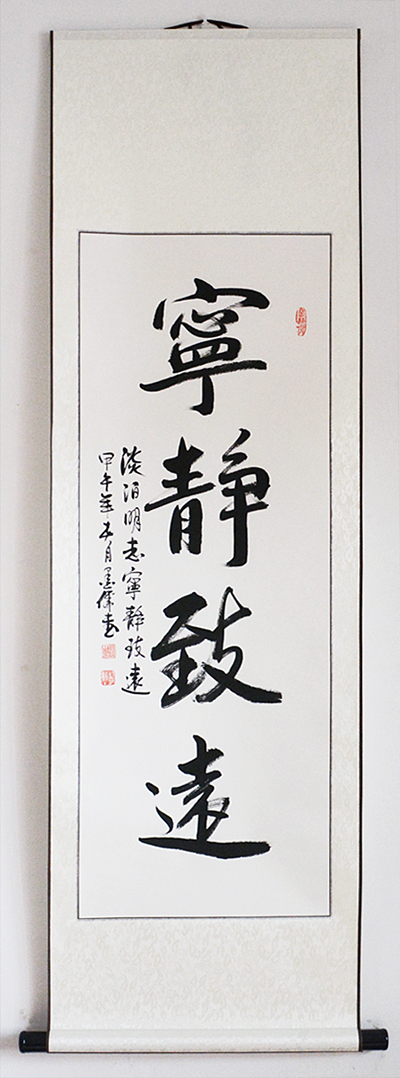 寧靜致遠
淡泊明志寧靜致遠
甲午年